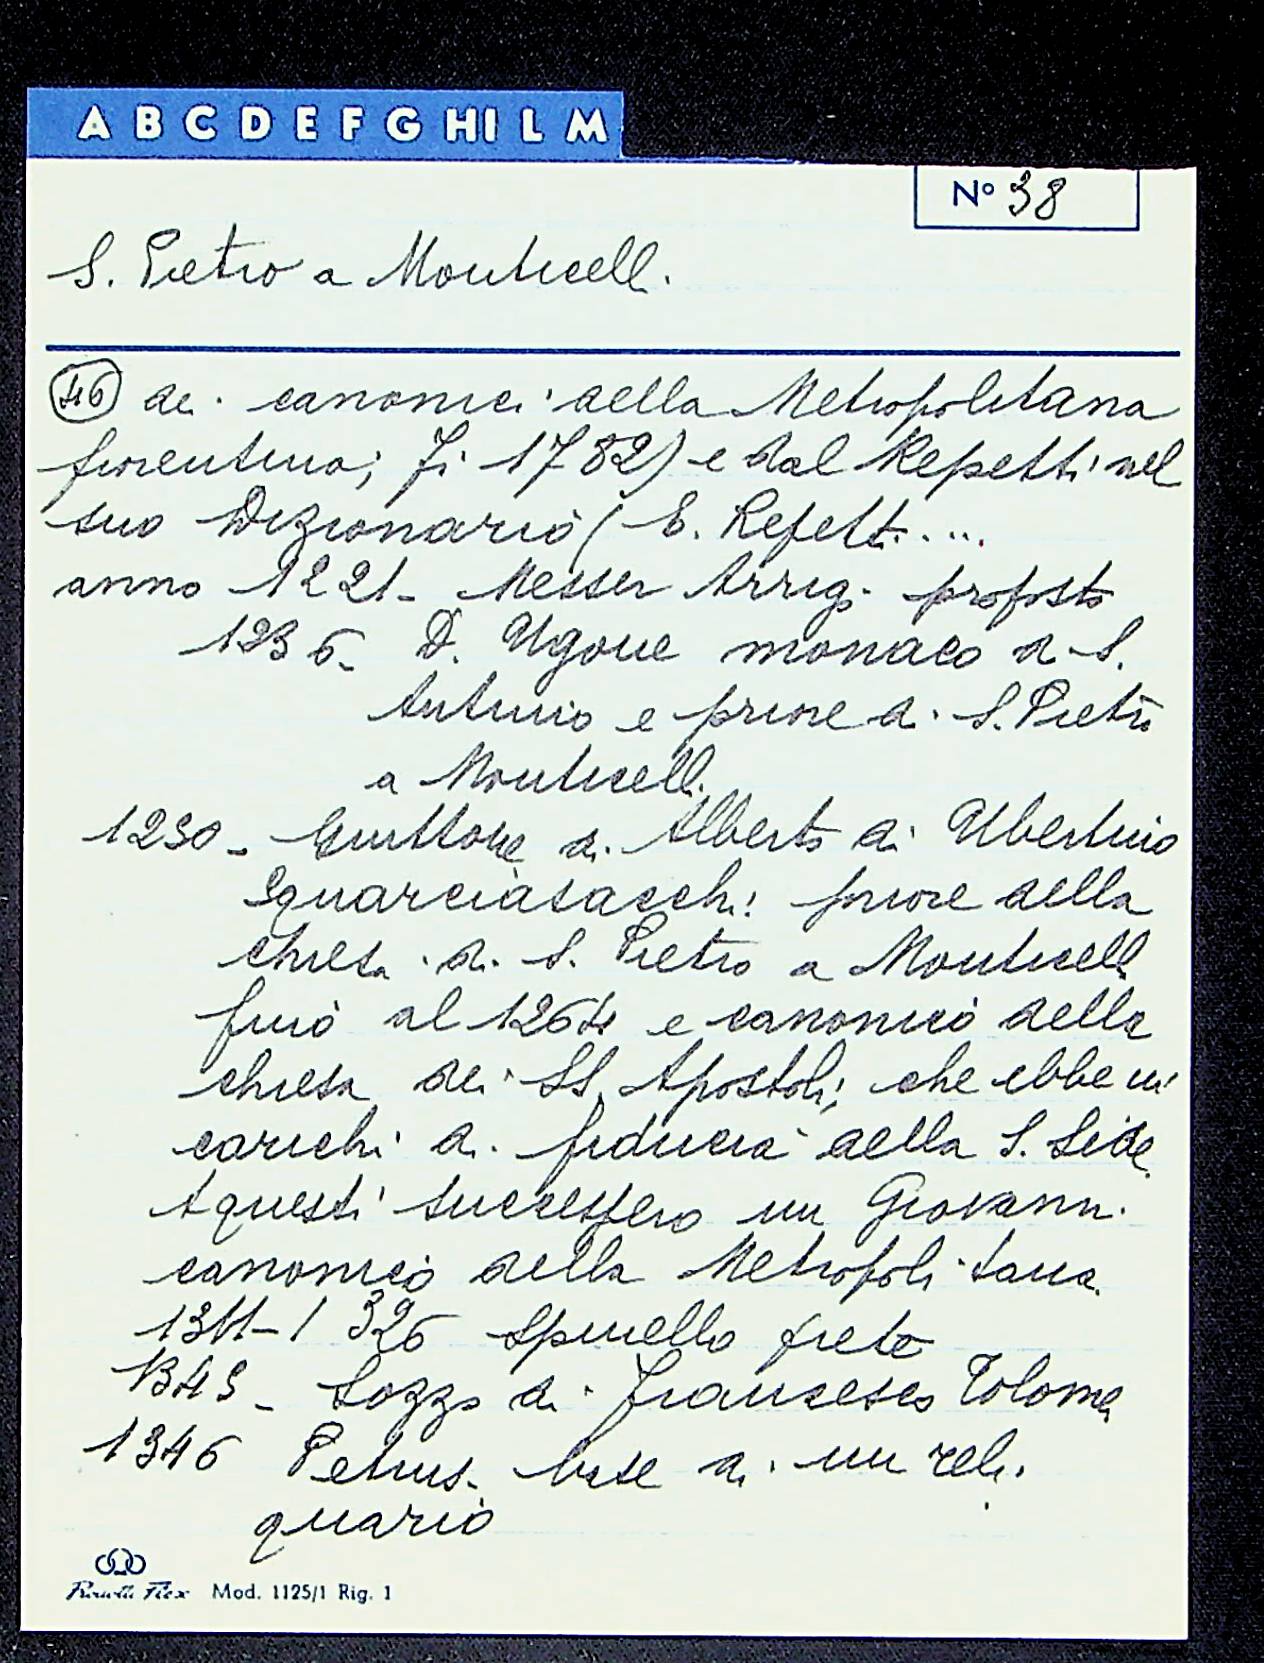 A B C D E F G H I L M
N° 38
S. Pietro a Monticelli.
46 dei canonici della Metropolitana
fiorentina; Fi 1782) e dal Repetti nel
suo Dizionario (E. Repetti....
anno 1221- Messer Arrigo proposto
1236- D. Ugone monaco di S.
Antimo e priore di S. Pietro
a Monticelli.
1230- Guittone di Alberto di Ubertino
Squarciasacchi priore della
chiesa di S. Pietro a Monticelli
fino al 1264 e canonico della
chiesa dei SS. Apostoli, che ebbe in
carichi di fiducia della S. Sede.
A questi successero un Giovanni
canonico della Metropolitana.
1311-1326 Spinello prete
1343- Sozzo di Francesco Tolomei
1346 Petrus- base di un reli
quario
Mod. 1125/1 Rig. 1